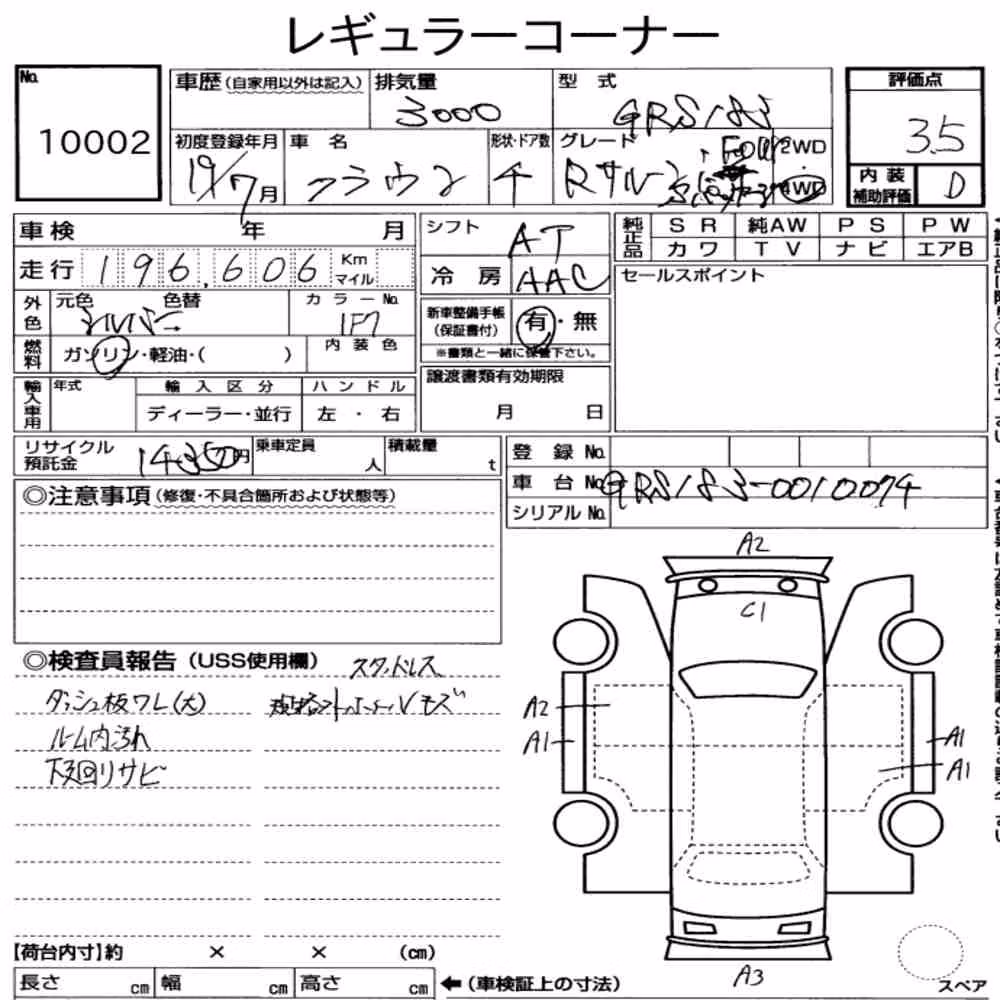 レギュラーコーナー
No. 10002
車歴(自家用以外は記入) 排気量 3000 型式 GRS183
評価点 3.5
初度登録年月 19/7月 車名 クラウン 形状・ドア数 4 グレード Rサルーン Four 2WD・4WD
内装補助評価 D
車検 年 月
走行 196,606 Km マイル
外色 元色 シルバー 色替 カラーNo. 1F7
燃料 ガソリン・軽油・( ) 内装色
輸入車用 年式 輸入区分 ディーラー・並行 ハンドル 左・右
シフト AT
冷房 AAC
新車整備手帳(保証書付) 有・無
※書類と一緒に保管下さい。
譲渡書類有効期限 月 日
純正品 SR 純AW PS PW
カワ TV ナビ エアB
セールスポイント
リサイクル預託金 14350円 乗車定員 人 積載量 t
登録No.
車台No. GRS183-0010074
シリアルNo.
◎注意事項(修復・不具合箇所および状態等)
◎検査員報告(USS使用欄) スタッドレス
ダッシュ板ワレ(大)
ルーム内汚れ
下廻りサビ
A2
C1
A2
A1
A1
A1
A3
【荷台内寸】約 × × (cm)
長さ cm 幅 cm 高さ cm ←(車検証上の寸法)
スペア